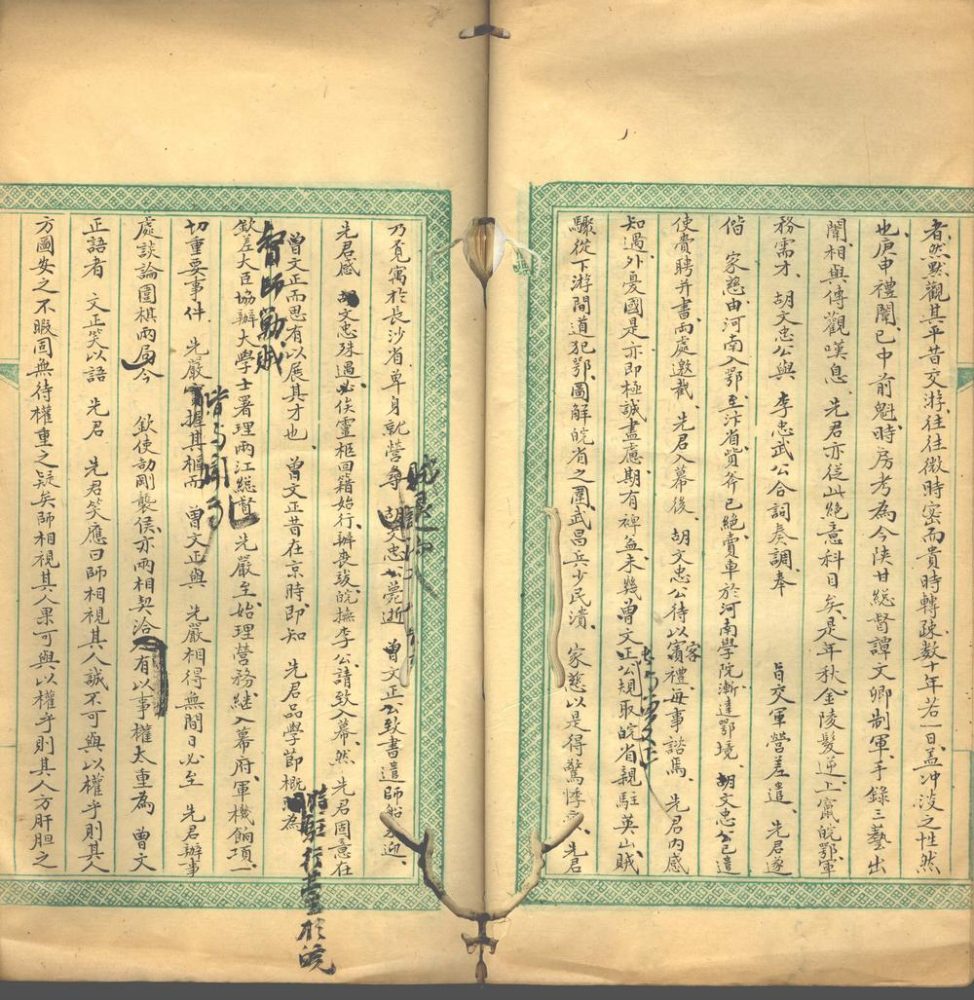 者然默觀其平昔交游往往微時密而貴時轉疎數十年若一日蓋冲淡之性然
也庚申禮闈已中前魁時房考為今陝甘總督譚文卿制軍手錄三藝出
闈相與傳觀嘆息先君亦從此絕意科目矣是年秋金陵髮逆上竄皖鄂軍
務需才胡文忠公與李忠武公合詞奏調奉旨交軍營差遣先君遂
偕家慈由河南入鄂至汴省貲斧已絕賣車於河南學院漸達鄂境胡文忠公已遣
使賫聘并書而處邀截先君入幕後胡文忠公待以賓禮每事諮焉先君內感
客
知遇外憂國是亦即極誠盡慮期有裨益未幾曾文正公規取皖省親駐英山賊
驟從下游間道犯鄂圖解皖省之圍武昌兵少民潰家慈以是得驚悸先君
乃覓寓於長沙省單身就營專胡文忠公薨逝曾文正公致書遣師船來迎
先君感胡文忠殊遇必俟靈柩回籍始行辦喪談皖撫李公請致入幕然先君固意在
曾文正而思有以展其才也曾文正昔在京時即知先君品學節概為
特駐行臺於皖
督師勦賊
欽差大臣協辦大學士署理兩江總督先嚴至始理營務繼入幕府軍機餉項一
切重要事件先嚴實握其樞而曾文正與先嚴相得無間日必至先君辦事
處談論圍棋兩局今欽使劼剛襲侯亦兩相契洽有以事權太重為曾文
正語者文正笑以語先君先君笑應曰師相視其人誠不可與以權乎則其人
方圖安之不暇固無待權重之疑矣師相視其人果可與以權乎則其人方肝胆之